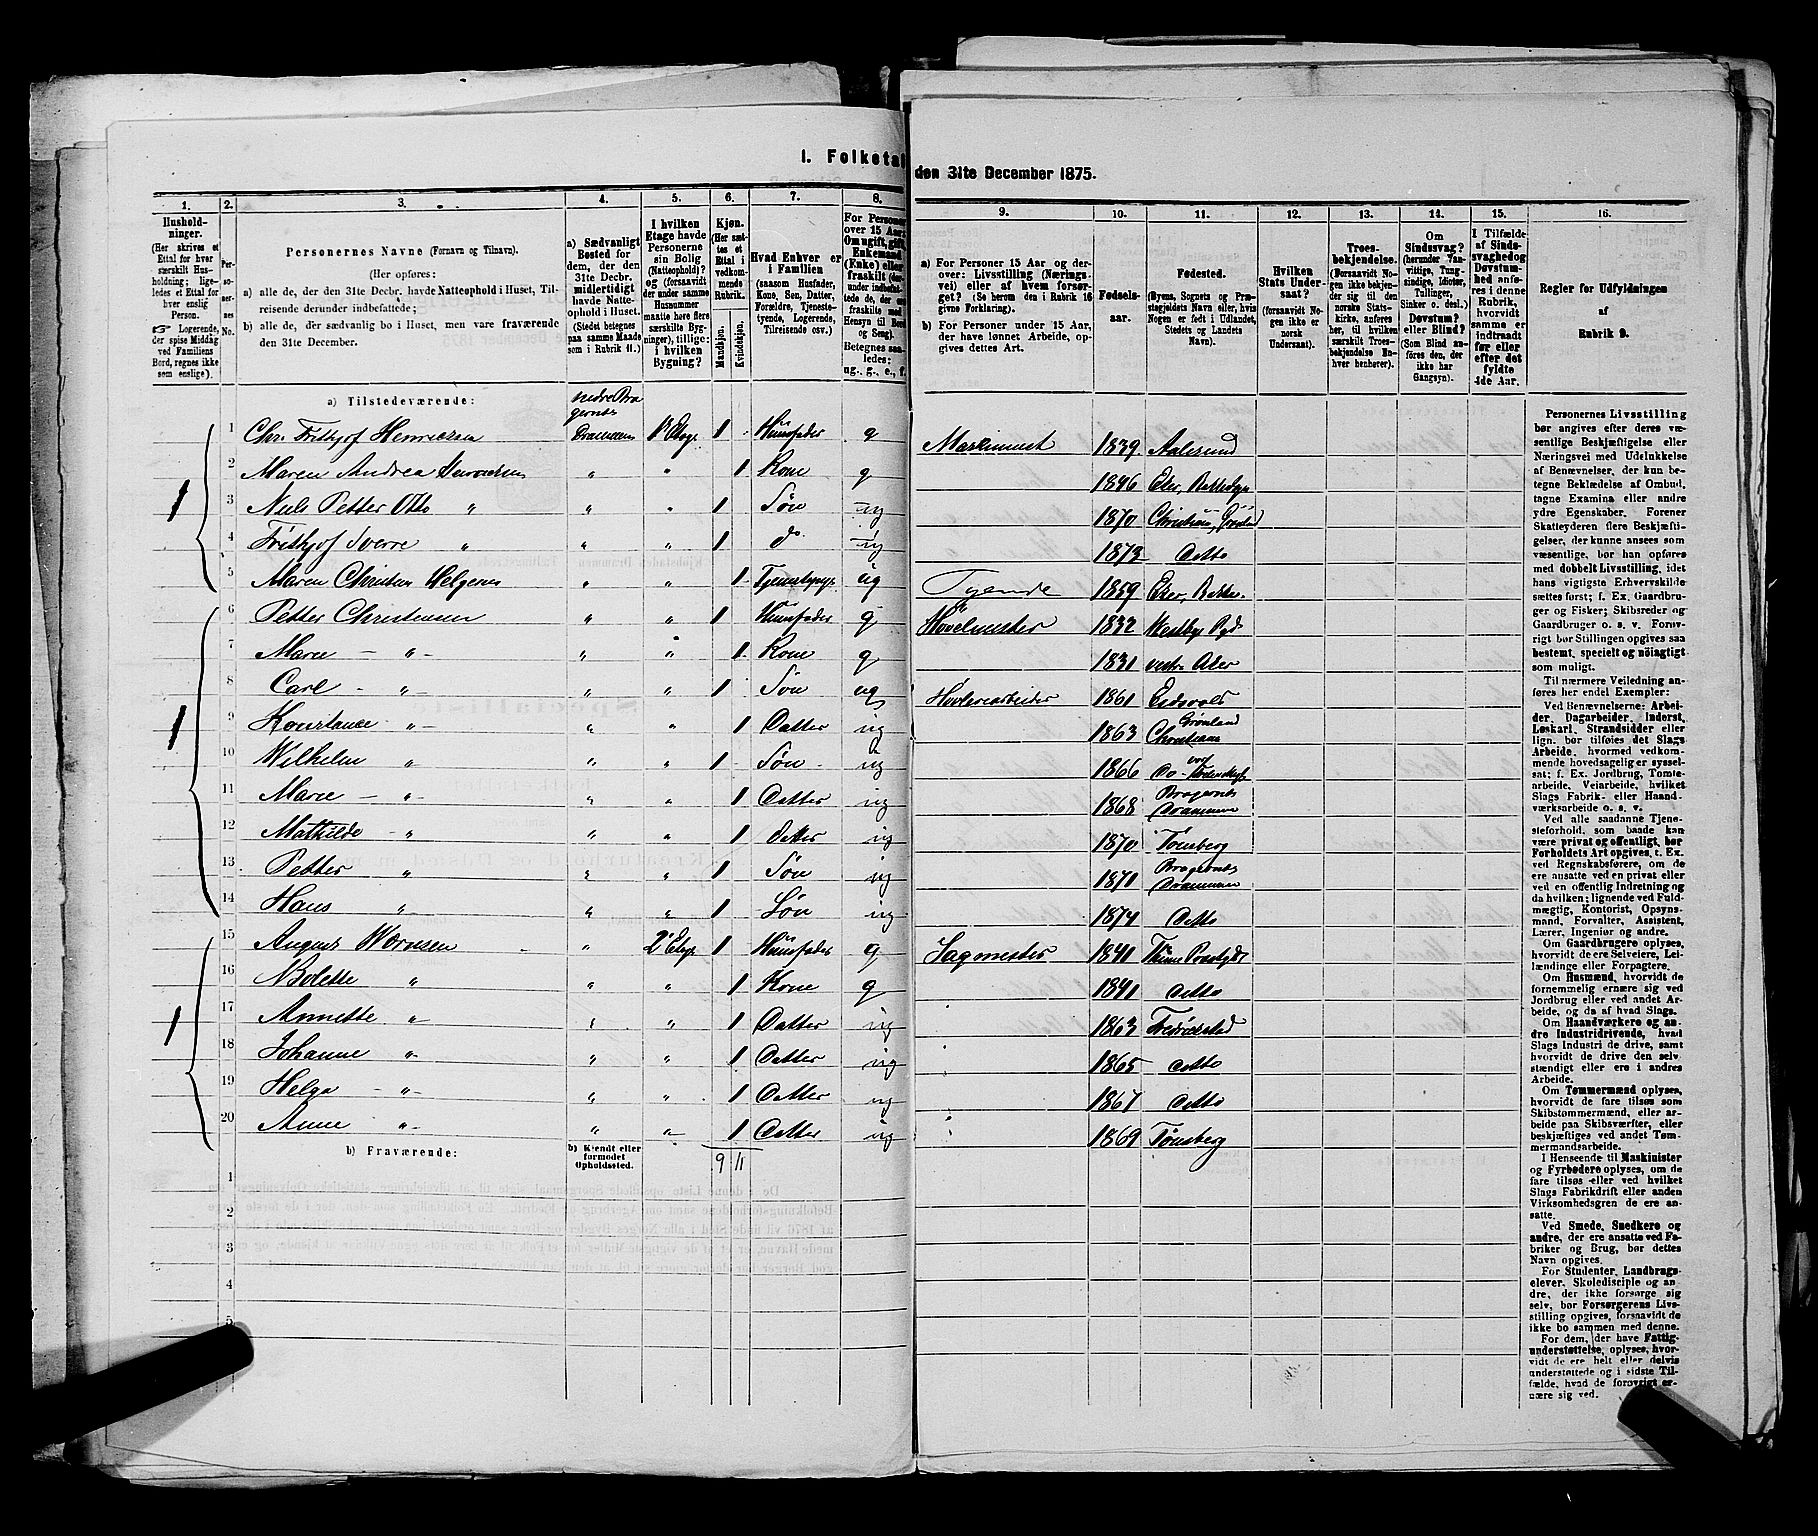 I. Folketal den 31te December 1875.
1. 2. 3. 4. 5. 6. 7. 8. 9. 10. 11. 12. 13. 14. 15. 16.
Husholdninger.
(Her skrives et Ettal for hver særskilt Husholdning; ligeledes et Ettal for hver enslig Person.
☞ Logerende, der spise Middag ved Familiens Bord, regnes ikke som enslige).
Personernes No.
Personernes Navne (Fornavn og Tilnavn).
(Her opføres:
a) alle de, der den 31te Decbr. havde Natteophold i Huset, Tilreisende derunder indbefattede;
b) alle de, der sædvanlig bo i Huset, men vare fraværende den 31te December.
a) Sædvanligt Bosted for dem, der den 31te Decbr. midlertidigt havde Natteophold i Huset.
(Stedet betegnes paa samme Maade som i Rubrik 11.)
I hvilken Etage havde Personerne sin Bolig (Natteophold)? og (forsaavidt der under samme Husnummer maatte høre flere særskilte Bygninger), tillige: i hvilken Bygning?
Kjøn.
(Her sættes et Ettal i vedkommende Rubrik.
Mandkjøn. Kvindekjøn.
Hvad Enhver er i Familien
(saasom Husfader, Kone, Søn, Datter, Forældre, Tjenestetyende, Logerende, Tilreisende osv.)
For Personer over 15 Aar: Om ugift, gift, Enkemand (Enke) eller fraskilt
Betegnes saaledes: ug., g., e., f.
a) For Personer 15 Aar og derover: Livsstilling (Næringsvei) eller af hvem forsørget? (Se herom den i Rubrik 16 givne Forklaring).
b) For Personer under 15 Aar, der have lønnet Arbeide, opgives dettes Art.
Fødselsaar.
Fødested.
(Byens, Sognets og Præstegjeldets Navn eller, hvis Nogen er født i Udlandet, Stedets og Landets Navn).
Hvilken Stats Undersaat?
(forsaavidt Nogen ikke er norsk Undersaat).
Troesbekjendelse.
(Forsaavidt Nogen ikke bekjender sig til den norske Statskirke, anføres her, til hvilken særskilt Troesbekjendelse Enhver henhører).
Om Sindssvag? (herunder Vanvittige, Tungsindige, Idioter, Tullinger, Sinker o. desl.) Døvstum? eller Blind?
(Som Blind anføres den, der ikke har Gangsyn).
I Tilfælde af Sindssvaghed og Døvstumhed anføres i denne Rubrik, hvorvidt samme er indtraadt før eller efter det fyldte 4de Aar.
Regler for Udfyldningen af Rubrik 9.
a) Tilstedeværende: Nedre Bragernes
1 Chr. Frithjof Henricksen Drammen 1ste Etage 1 Huusfader g Maskinmest 1839 Aalesund
2 Maren Andrea " " 1 Kone g 1846 Eker,
3 Nils Petter Otto " " " 1 Søn ug 1870 Christiania, Grønland
4 Frithjof Sverre " " " 1 do ug 1873 Detto
5 Maren Christine Helgesen " " 1 ug Tyende 1859 Eker,
6 Petter Christensen " " 1 Huusfader g Høvelmester 1832 Vestby
7 Maren — " — " " 1 Kone g 1831 vestre Aker
8 Carl - " — " " 1 Søn ug Høvleriarbeider 1861 Eidsvold
9 Konstance - " — " " 1 Datter ug 1863 Christiania Grønland
10 Wilhelm " " " 1 Søn ug 1866 do
11 Maren — " — " " 1 Datter ug 1868 Bragernes Drammen
12 Mathilde — " " " 1 Datter ug 1870 Tønsberg
13 Petter " " " 1 Søn ug 1871 Bragernes Drammen
14 Hans " " " 1 Søn ug 1874 Detto
15 August Wornsen " 2den Etage 1 Huusfader g Sagmester 1841 Thune
16 Bolette " " " 1 Kone g 1841 Detto
17 Annette " " " 1 Datter ug 1863 Fredrikstad
18 Johanne " " " 1 Datter ug 1865 Detto
19 Helga — " — " " 1 Datter ug 1867 Detto
20 Anne " — " " 1 Datter ug 1869 Tønsberg
b) Fraværende: b) Kjendt eller formodet Opholdssted. 9 11
1
2
3
4
5
Personernes Livsstilling bør angives efter deres væsentlige Beskjæftigelse eller Næringsvei med Udelukkelse af Benævnelser, der kun betegne Beklædelse af Ombud, tagne Examina eller andre ydre Egenskaber. Forener Skatteyderen flere Beskjæftigelser, der kunne ansees som væsentlige, bør han opføres med dobbelt Livsstilling, idet hans vigtigste Erhvervskilde sættes først; f. Ex. Gaardbruger og Fisker; Skibsreder og Gaardbruger o. s. v. Forøvrigt bør Stillingen opgives saa bestemt, specielt og nøiagtigt som muligt.
Til nærmere Veiledning anføres her endel Exempler:
Ved Benævnelserne: Arbeider, Dagarbeider, Inderst, Løskarl, Strandsidder eller lign. bør tilføies det Slags Arbeide, hvormed vedkommende hovedsagelig er sysselsat; f. Ex. Jordbrug, Tomtearbeide, Veiarbeide, hvilket Slags Fabrik- eller Haandværksarbeide o. s. v.
Ved alle saadanne Tjenesteforhold, som baade kan være privat og offentligt, bør Forholdets Art opgives, t. Ex. ved Regnskabsførere, om de ere ansatte ved en privat eller ved en offentlig Indretning og da hvilken; lignende ved Fuldmægtig, Kontorist, Opsynsmand, Forvalter, Assistent, Lærer, Ingeniør og andre.
Om Gaardbrugere oplyses, hvorvidt de ere Selveiere, Leilændinge eller Forpagtere.
Om Husmænd, hvorvidt de fornemmelig ernære sig ved Jordbrug eller ved andet Arbeide, og da af hvad Slags.
Om Haandværkere og andre Industridrivende, hvad Slags Industri de drive, samt hvorvidt de drive den selvstændigt eller ere i andres Arbeide.
Om Tømmermænd oplyses, hvorvidt de fare tilsøs som Skibstømmermænd, eller arbeide paa Skibsværfter, eller beskjæftiges ved andet Tømmermandsarbeide.
I Henseende til Maskinister og Fyrbødere oplyses, om de fare tilsøs eller ved hvilket Slags Fabrikdrift eller anden Virksomhedsgren de ere ansatte.
Ved Smede, Snedkere og andre, der ere ansatte ved Fabriker og Brug, bør dettes Navn opgives.
For Studenter, Landbrugselever, Skoledisciple og andre, der ikke forsørge sig selv, bør Forsørgerens Livsstilling opgives, forsaavidt de ikke bo sammen med denne.
For dem, der have Fattigunderstøttelse, oplyses, hvorvidt de ere helt eller delvis understøttede og i sidste Tilfælde, hvad de forøvrigt ernære sig ved.